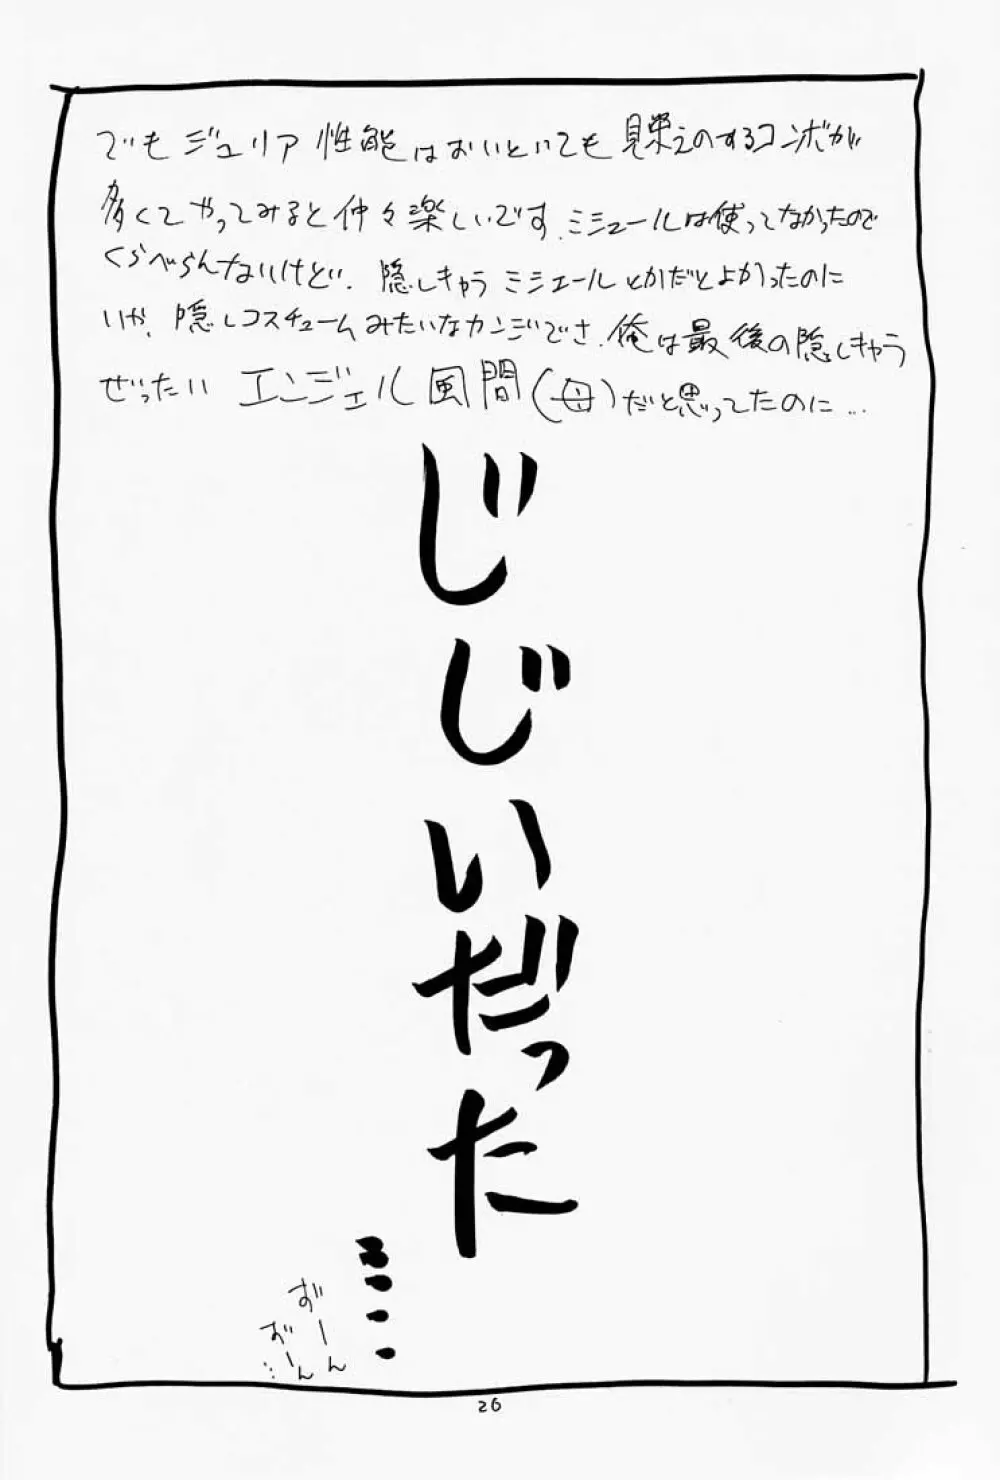 でもジュリア性能はおいといても見栄えのするコンボが
多くてやってみると仲々楽しいです.ミシェールは使ってなかったので
くらべらんないけど.隠しきゃらミシェールとかだとよかったのに
いか.隠しコスチュームみたいなカンジでさ.俺は最後の隠しきゃら
ぜったいエンジェル風間(母)だと思ってたのに...
じじいだった
....
ずーん
おーん...
26